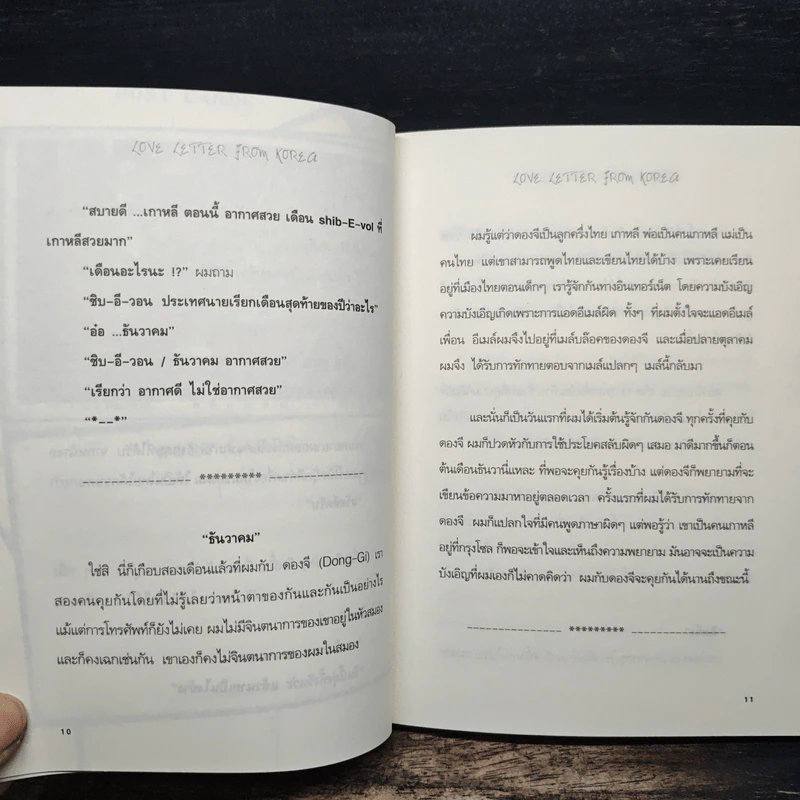 LOVE LETTER FROM KOREA
"สบายดี ...เกาหลี ตอนนี้ อากาศสวย เดือน shib-E-vol ที่
เกาหลีสวยมาก"
"เดือนอะไรนะ !?" ผมถาม
"ชิบ-อี-วอน ประเทศนายเรียกเดือนสุดท้ายของปีว่าอะไร"
"อ๋อ ...ธันวาคม"
"ชิบ-อี-วอน / ธันวาคม อากาศสวย"
"เรียกว่า อากาศดี ไม่ใช่อากาศสวย"
"*__*"
---------------- ********* ----------------
"ธันวาคม"
ใช่สิ นี่ก็เกือบสองเดือนแล้วที่ผมกับ ดองจี (Dong-Gi) เรา
สองคนคุยกันโดยที่ไม่รู้เลยว่าหน้าตาของกันและกันเป็นอย่างไร
แม้แต่การโทรศัพท์ก็ยังไม่เคย ผมไม่มีจินตนาการของเขาอยู่ในหัวสมอง
และก็คงเฉกเช่นกัน เขาเองก็คงไม่จินตนาการของผมในสมอง
10
LOVE LETTER FROM KOREA
ผมรู้แต่ว่าดองจีเป็นลูกครึ่งไทย เกาหลี พ่อเป็นคนเกาหลี แม่เป็น
คนไทย แต่เขาสามารถพูดไทยและเขียนไทยได้บ้าง เพราะเคยเรียน
อยู่ที่เมืองไทยตอนเด็กๆ เรารู้จักกันทางอินเทอร์เน็ต โดยความบังเอิญ
ความบังเอิญเกิดเพราะการแอดอีเมล์ผิด ทั้งๆ ที่ผมตั้งใจจะแอดอีเมล์
เพื่อน อีเมล์ผมจึงไปอยู่ที่เมล์บล๊อคของดองจี และเมื่อปลายตุลาคม
ผมจึง ได้รับการทักทายตอบจากเมล์แปลกๆ เมล์นี้กลับมา
และนั่นก็เป็นวันแรกที่ผมได้เริ่มต้นรู้จักกันดองจี ทุกครั้งที่คุยกับ
ดองจี ผมก็ปวดหัวกับการใช้ประโยคสลับผิดๆ เสมอ มาดีมากขึ้นก็ตอน
ต้นเดือนธันวานี่แหละ ที่พอจะคุยกันรู้เรื่องบ้าง แต่ดองจีก็พยายามที่จะ
เขียนข้อความมาหาอยู่ตลอดเวลา ครั้งแรกที่ผมได้รับการทักทายจาก
ดองจี ผมก็แปลกใจที่มีคนพูดภาษาผิดๆ แต่พอรู้ว่า เขาเป็นคนเกาหลี
อยู่ที่กรุงโซล ก็พอจะเข้าใจและเห็นถึงความพยายาม มันอาจจะเป็นความ
บังเอิญที่ผมเองก็ไม่คาดคิดว่า ผมกับดองจีจะคุยกันได้นานถึงขณะนี้
---------------- ********* ----------------
11